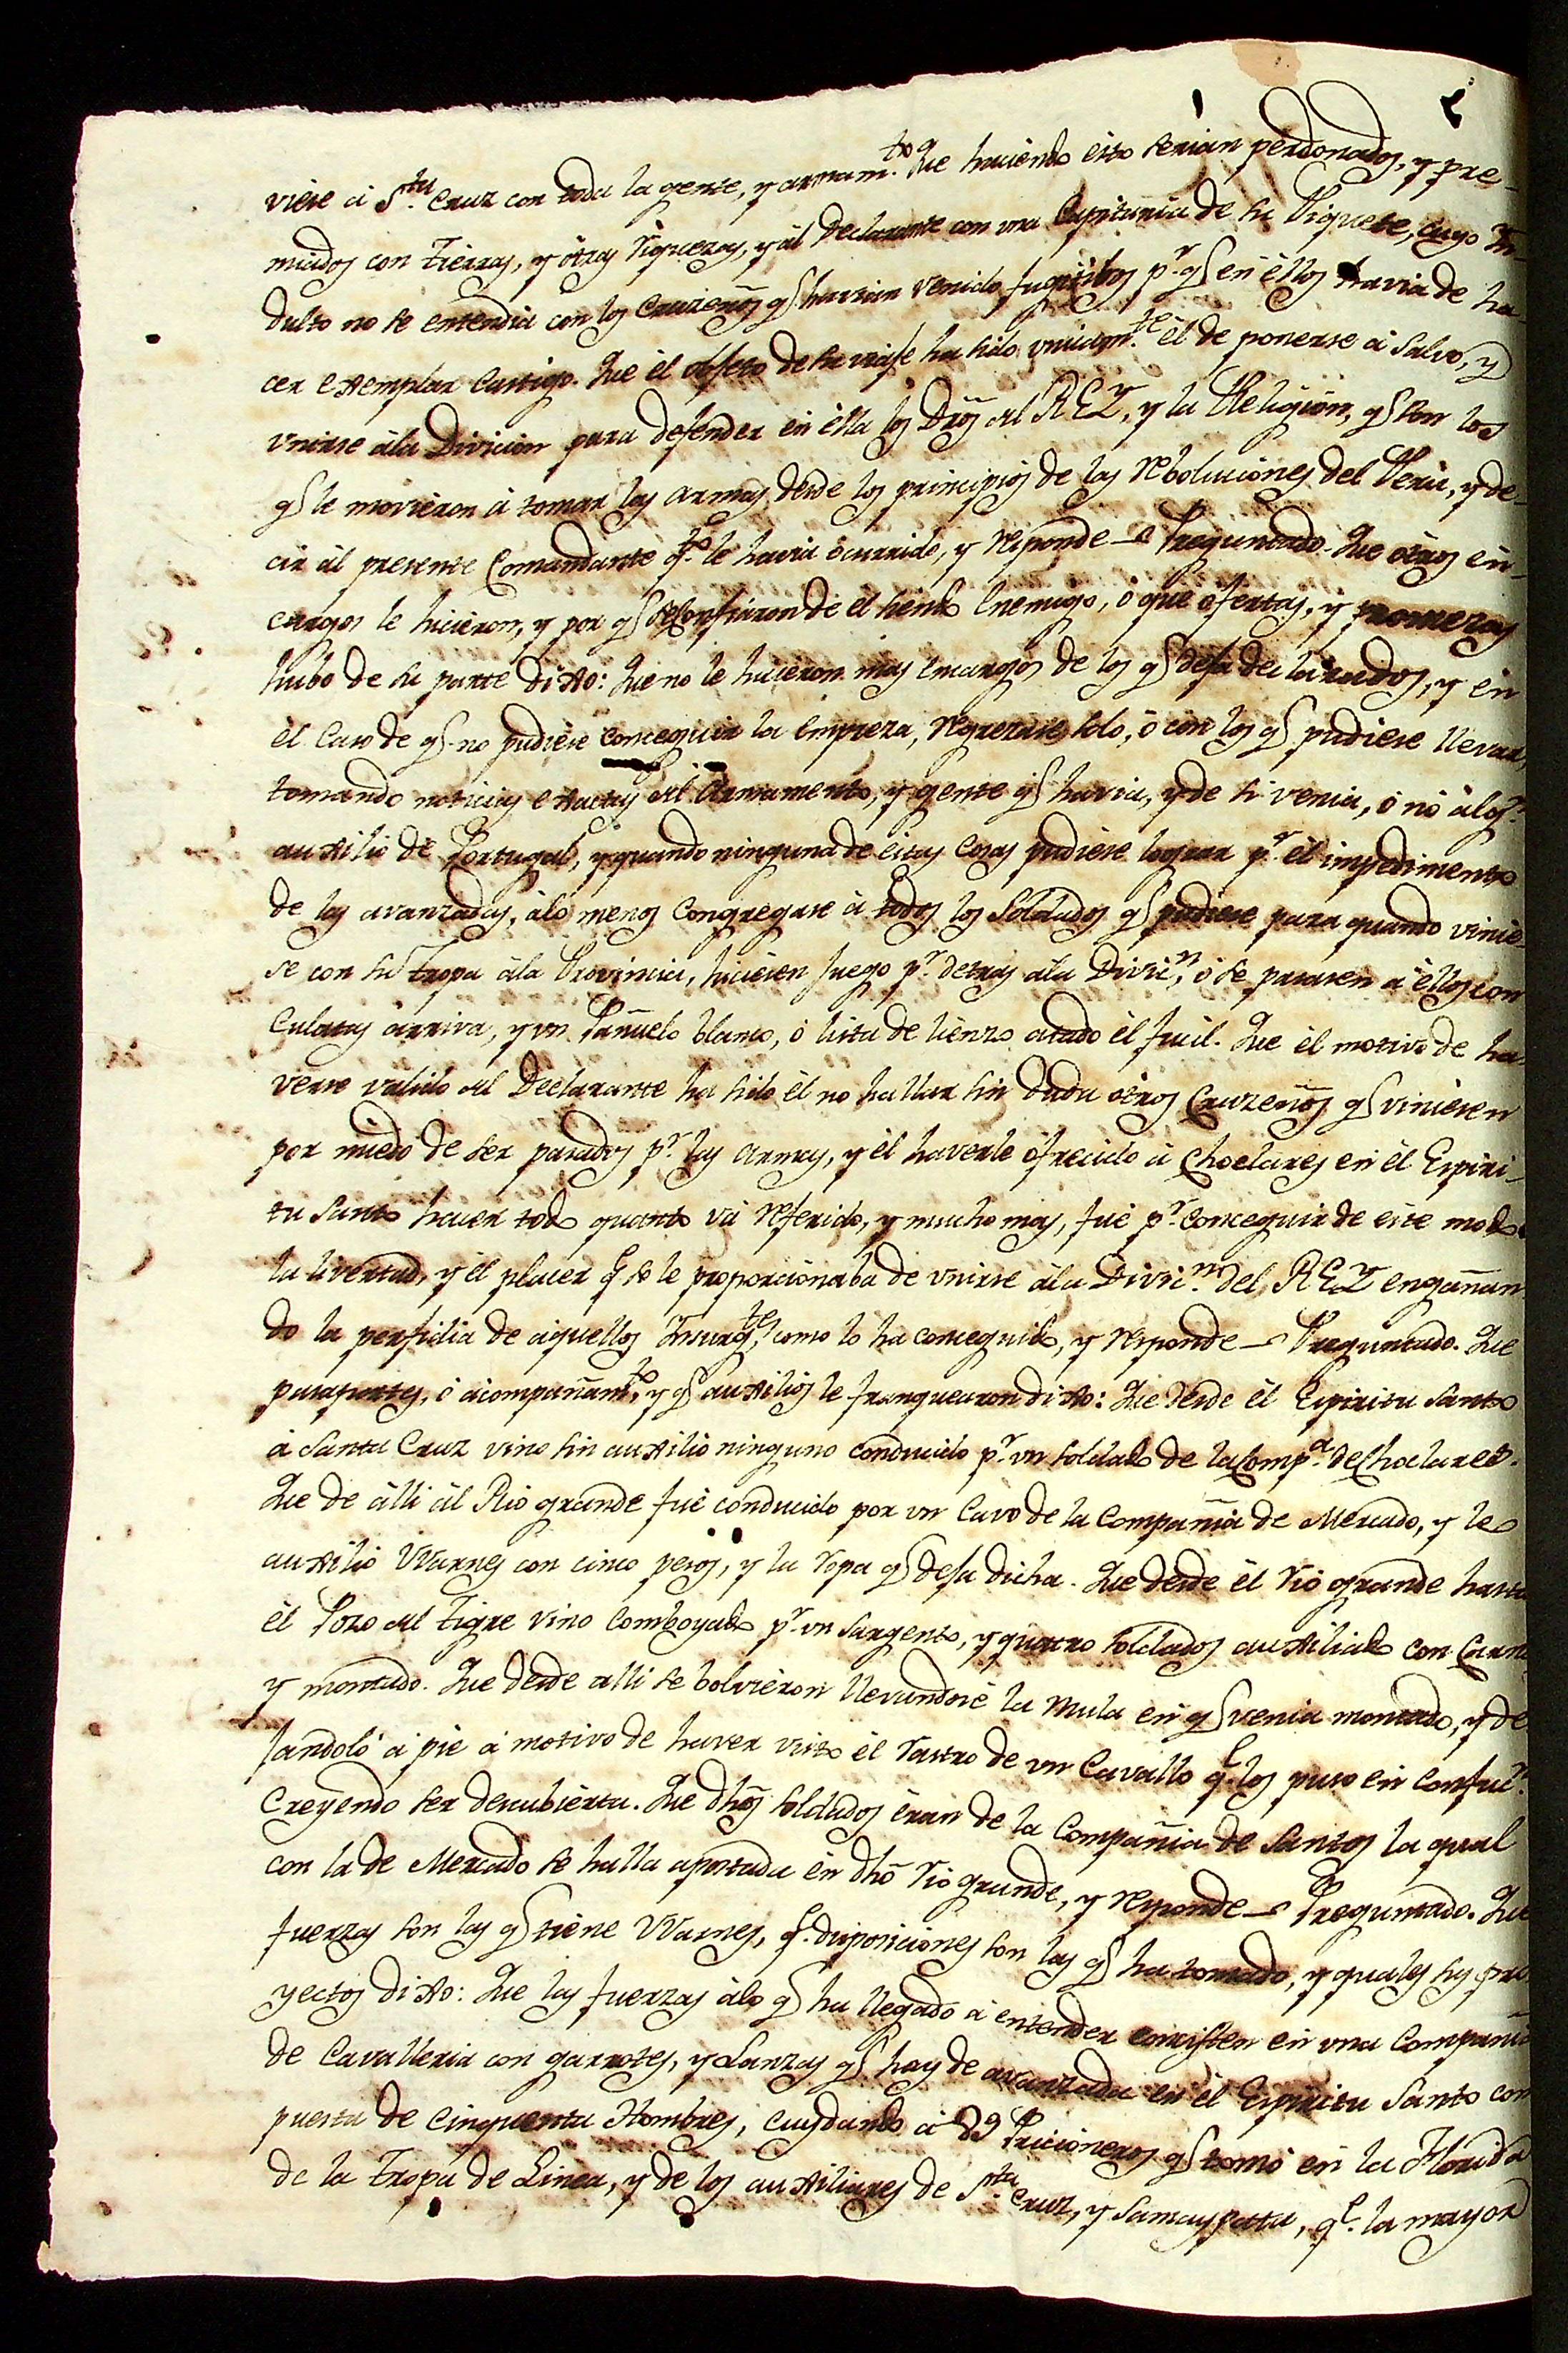 viese á S.ta Cruz con toda la gente, y armam.to Que haciendo esto serian perdonados, y pre-
miados con tierras, y ótras riquezas, y ál Declarante con una Capitania de su Piquete, cuyo In-
dulto no se entendia con los Cruzeños q.e havian venido fugitibos p.r q.e en éllos havia de ha-
cer exemplar castigo. Que él objeto de su viaje ha sido unicam.te él de ponerse á salvo, y
unirse ála Divicion para defender en élla los Dros del REY, y la Religion, q.e son los
q.e le movieron á tomar las armas desde los principios de las reboluciones del Perú, y de-
cir ál presente Comandante q.to le havia ócurrido, y responde – Preguntado. Que ótros en-
cargos le hicieron, y por q.e se confiaron de él siendo Enemigo, ó que ófertas, y promezas
hubo de su parte dixo: Que no le hicieron mas encargos de los q.e deja declarados, y en
él caso de q.e no pudiése conceguir la empreza, regrezase solo, ó con los q.e pudiese llevar,
tomando noticias exactas del Armamento, y gente q.e havia, y de si venia, ó nó álg.n
auxilio de Portugal, y quando ninguna de estas cosas pudiese lograr p.r él impedimento
de las avanzadas, álo menos congregase á todos los Soldados q.e pudiese para quando vinie-
se con su Tropa ála Provincia, hiciésen fuego p.r detras ála Divic.n, ó se pasasen á éllos con
Culatas árriva, y un Pañuelo blanco, ó lista de lienzo atado él fucil. Que él motivo de ha-
verse valido del Declarante ha sido él no hallar sin duda ótros Cruzeños q.e viniesen
por miedo de ser pasados p.r las armas, y él haverle ófrecido á Choelares en él Espiri-
tu Santo hacer todo quanto vá referido, y mucho mas, fué p.r conceguir de este modo
la livertad, y él placer q.e se le proporcionaba de unirse ála Divic.n del REY engañan
do la perfidia de áquellos Insurg.tes, como lo ha conceguido, y responde – Preguntado. Que
pasaportes, ó ácompañam.to, y q.e auxilios le franquearon dixo: Que desde él Espiritu Santo
á Santa Cruz vino sin auxilio ninguno conducido p.r un soldado de la Comp.a de Choelares.
Que de álli ál Rio grande fué conducido por un Cavo de la Compañia de Mercado, y le
auxilió Warnes con cinco pesos, y la ropa q.e deja dicha. Que desde él Rio grande hasta
él Pozo del Tigre vino comboyado p.r un Sargento, y quatro soldados auxiliado con Carne
y montado. Que desde alli se bolviéron llevandose la Mula en q.e venia montado, y de
jandoló á pié á motivo de haver visto él rastro de un Cavallo q.e los puso en confuc.n
creyendo ser descubiérta. Que dhos soldados éran de la Compañia de Santos la qual
con la de Mercado se halla apostada en dho Rio grande, y responde – Preguntado. Que
fuerzas son las q.e tiene Warnes, q.e disposiciones son las q.e ha tomado, y quales sus pro
yectos dixo: Que las fuerzas álo q.e ha llegado á entender concisten en una Compañia
de Cavalleria con garrotes, y Lanzas q.e hay de avanzada en él Espiritu Santo com
puesta de cinquenta Hombres, cuydando á 89 Pricioneros q.e tomó en la Florida
de la Tropa de Linea, y de los auxiliares de S.ta Cruz, y Samaypata, q.e la mayor